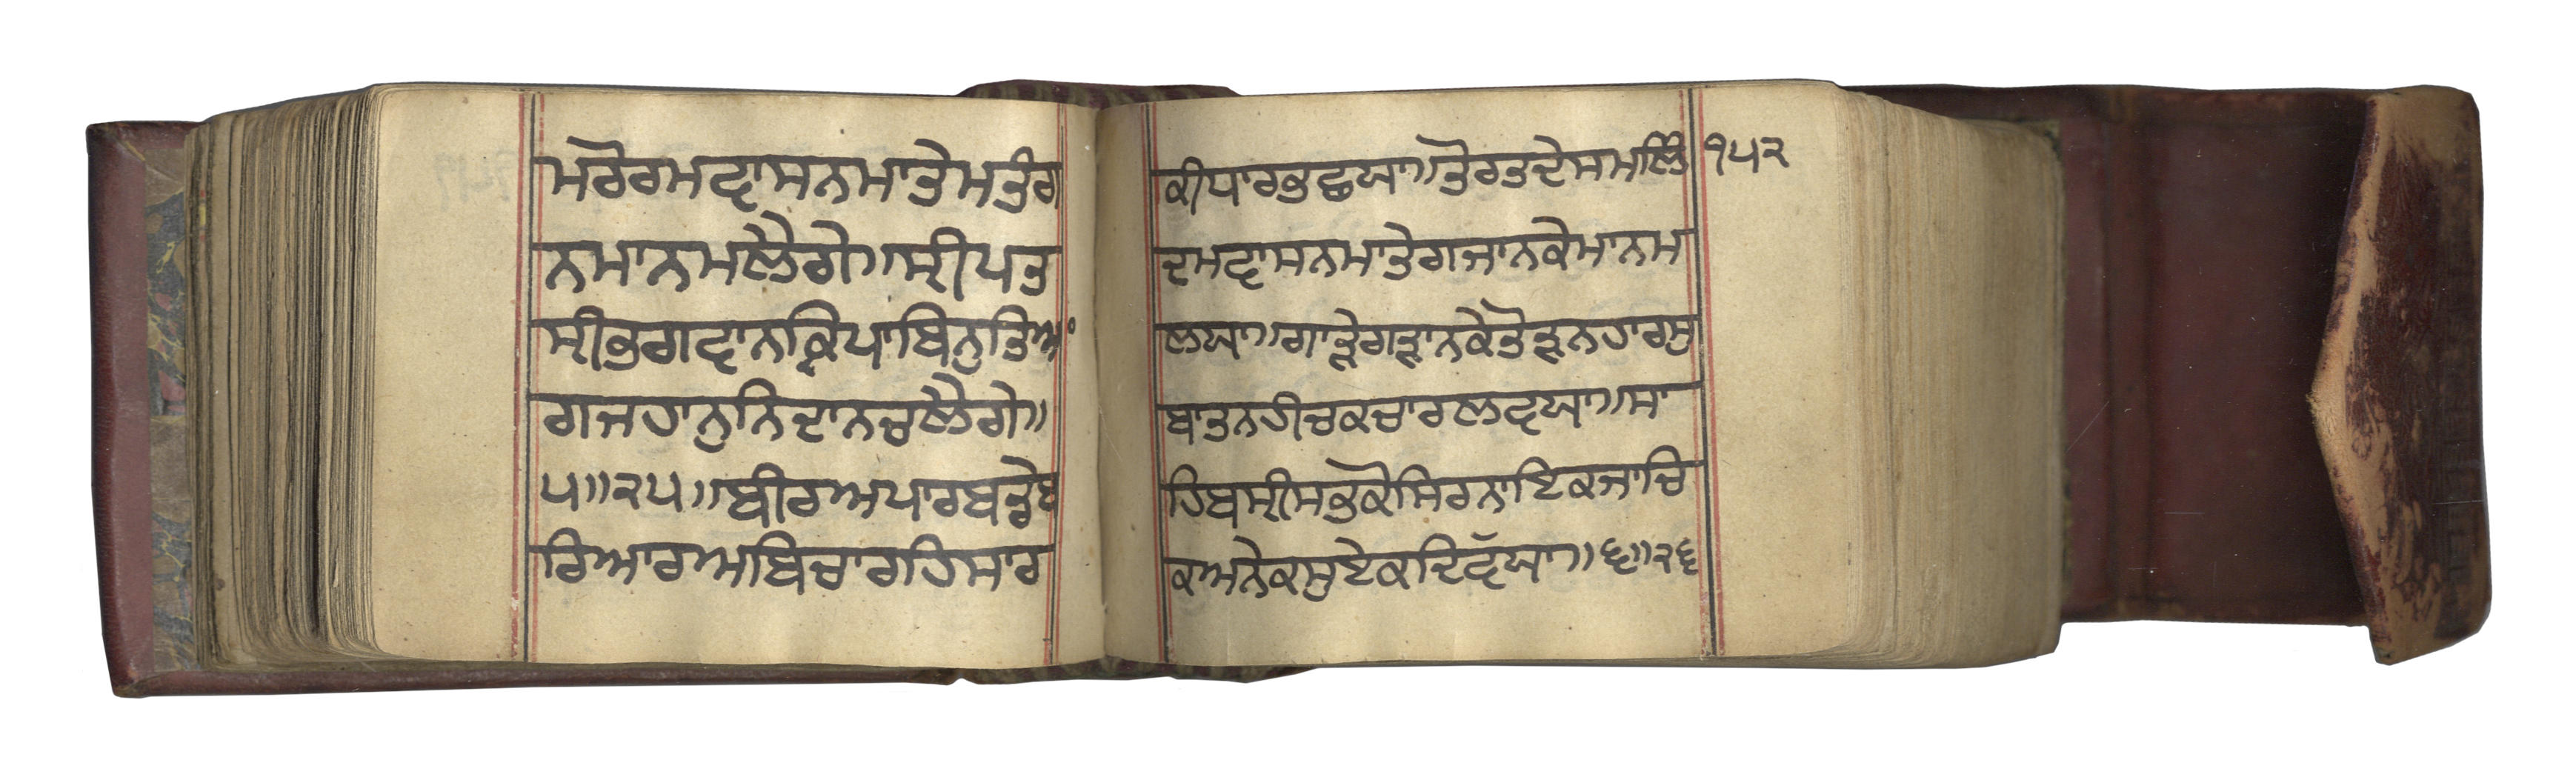 ਮਰੋਰਮਵਾਸਨਮਾਤੇਮਤੰਗ
ਨਮਾਨਮਲੈਗੇ॥ਸ੍ਰੀਪਤ
ਸ੍ਰੀਭਗਵਾਨਕ੍ਰਿਪਾਬਿਨੁਤਿਆ
ਗਜਹਾਨੁਨਿਦਾਨਚਲੈਗੇ॥
੫॥੨੫॥ਬੀਰਅਪਾਰਬਡੇਬ
ਰਿਆਰਅਬਿਚਾਰਹਿਸਾਰ
ਕੀਧਾਰਭਛਯਾ॥ਤੋਰਤਦੇਸਮਲਿੰ
ਦਮਵਾਸਨਮਾਤੇਗਜਾਨਕੇਮਾਨਮ
ਲਯਾ॥ਗਾੜੇਗੜਾਨਕੇਤੋੜਨਹਾਰਸੁ
ਬਾਤਨਹੀਚਕਚਾਰਲਵਯਾ॥ਸਾ
ਹਿਬਸ੍ਰੀਸਭਕੋਸਿਰਨਾਇਕਜਾਚਿ
ਕਅਨੇਕਸੁਏਕਦਿਵੱਯਾ॥੬॥੨੬
੧੫੨